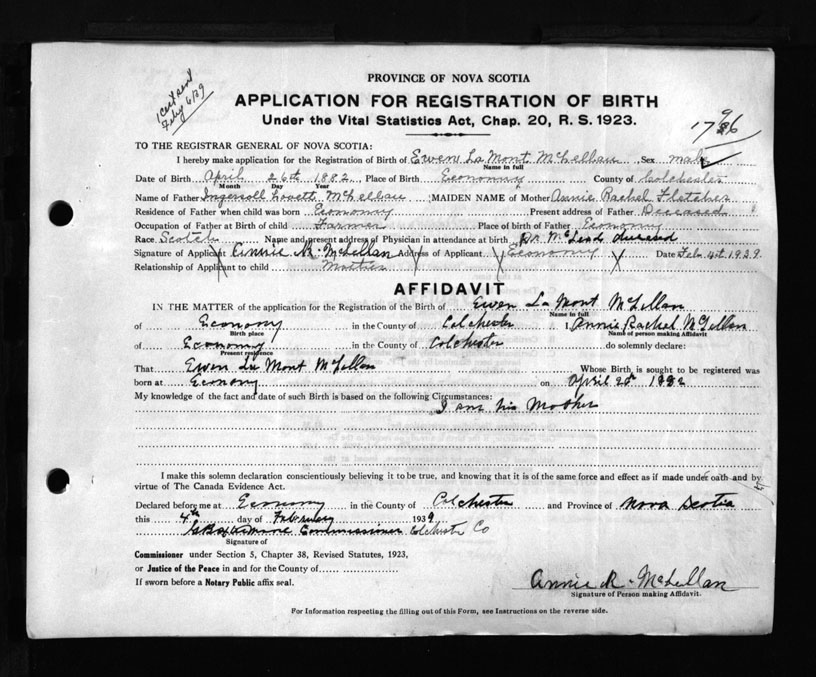 PROVINCE OF NOVA SCOTIA
1 cert sent
Feby 6/39
APPLICATION FOR REGISTRATION OF BIRTH
Under the Vital Statistics Act, Chap. 20, R. S. 1923.
TO THE REGISTRAR GENERAL OF NOVA SCOTIA:
I hereby make application for the Registration of Birth of Ewen La Mont McLellan Sex male
Name in full
Date of Birth April 26th 1882 Place of Birth Economy County of Colchester
Month Day Year
Name of Father Ingersoll Lovett McLellan MAIDEN NAME of Mother Annie Rachel Fletcher
Residence of Father when child was born Economy Present address of Father Deceased
Occupation of Father at Birth of child Farmer Place of birth of Father Economy
Race Scotch Name and present address of Physician in attendance at birth Dr McLeod
Signature of Applicant Annie R. McLellan Address of Applicant Economy Date Feb 4th 1939.
Relationship of Applicant to child Mother
AFFIDAVIT
IN THE MATTER of the application for the Registration of the Birth of Ewen La Mont McLellan
Name in full
of Economy in the County of Colchester I, Annie Rachel McLellan
Birth place Name of person making Affidavit
of Economy in the County of Colchester do solemnly declare:
Present residence
That Ewen La Mont McLellan Whose Birth is sought to be registered was
born at Economy on April 1882
My knowledge of the fact and date of such Birth is based on the following Circumstances:
I am his Mother
I make this solemn declaration conscientiously believing it to be true, and knowing that it is of the same force and effect as if made under oath and by
virtue of The Canada Evidence Act.
Declared before me at Economy in the County of Colchester and Province of Nova Scotia
this 4th day of February 1939
Commissioner Colchester Co
Signature of
Commissioner under Section 5, Chapter 38, Revised Statutes, 1923,
or Justice of the Peace in and for the County of
If sworn before a Notary Public affix seal.
Annie R. McLellan
Signature of Person making Affidavit.
For Information respecting the filling out of this Form, see Instructions on the reverse side.